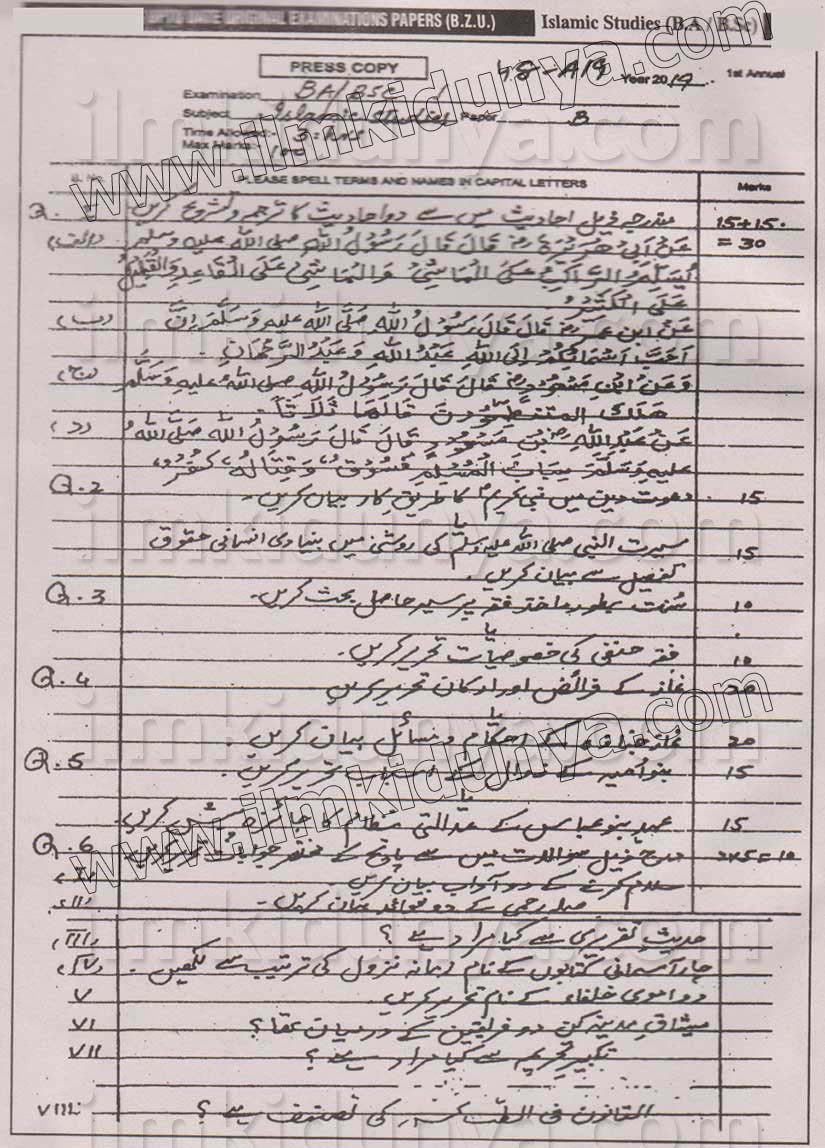 UP TO DATE ORIGINAL EXAMINATIONS PAPERS (B.Z.U.) Islamic Studies (B.A / B.Sc)
PRESS COPY
48-A19 Year 2019 1st Annual
Examination BA/BSC
Subject Islamic Studies Paper B
Time Allowed:- 3: Hrs
Max Marks:- 100
PLEASE SPELL TERMS AND NAMES IN CAPITAL LETTERS Marks
مندرجہ ذیل احادیث میں سے دو احادیث کا ترجمہ و تشریح کریں 15+15
(الف) عَنْ اَبِیْ هُرَيْرَةَ رض قَالَ قَالَ رَسُوْلُ اللهِ صلی الله علیه وسلم = 30
يُسَلِّمُ الرَّاكِبُ عَلَى الْمَاشِيْ وَالْمَاشِيْ عَلَى الْقَاعِدِ وَالْقَلِيْلُ
عَلَى الْكَثِيْرِ
(ب) عَنْ ابن عمر رض قَالَ قَالَ رَسُوْلُ اللهِ صَلَّى الله عليه وَسَلَّمَ اِنَّ
اَحَبَّ اَسْمَائِكُمْ اِلَى اللهِ عَبْدُ اللهِ وَعَبْدُ الرَّحْمَانِ -
(ج) وَعَنِ ابْنِ مسعود رض قَالَ قَالَ رَسُوْلُ اللهِ صلی اللهُ علیهِ وَسَلَّمَ
هَلَكَ المتنطعون قَالَهَا ثَلَاثًا -
(د) عَنْ عَبْدِ اللهِ بْنِ مَسْعُوْد رض قَالَ قَالَ رَسُوْلُ الله صَلَّى اللهُ
عليهِ وَسَلَّمَ سِبَابُ الْمُسْلِمِ فُسُوْقٌ وَقِتَالُهٗ كُفْرٌ
Q.2 دعوت دین میں نبی کریم ؐ کا طریق کار بیان کریں - 15
یا
سیرت النبی صلی اللہ علیہ وسلم کی روشنی میں بنیادی انسانی حقوق 15
تفصیل سے بیان کریں -
Q.3 سُنت بطور ماخذ فقہ پر سیر حاصل بحث کریں - 10
یا
فقہ حنفی کی خصوصیات تحریر کریں - 10
Q.4 نماز کے فرائض اور ارکان تحریر کریں 20
یا
نماز جنازہ کے احکام و مسائل بیان کریں - 20
Q.5 بنو اُمیہ کے زوال کے اسباب تحریر کریں - 15
یا
عہد بنو عباس کے عدالتی نظام کا جائزہ کریں - 15
Q.6 درج ذیل سوالات میں سے پانچ کے مختصر جوابات تحریر کریں 2x5=10
سلام کرنے کے دو آداب بیان کریں -
II صلہ رحمی کے دو فوائد بیان کریں -
III حدیث تقریری سے کیا مراد ہے ؟
IV چار آسمانی کتابوں کے نام زمانہ نزول کی ترتیب سے لکھیں -
V دو اموی خلفاء کے نام تحریر کریں -
VI میثاق مدینہ کن دو فریقین کے درمیان تھا ؟
VII تکبیر تحریم سے کیا مراد ہے ؟
VIII القانون فی الطب کس کی تصنیف ہے ؟
www.ilmkidunya.com
www.ilmkidunya.com